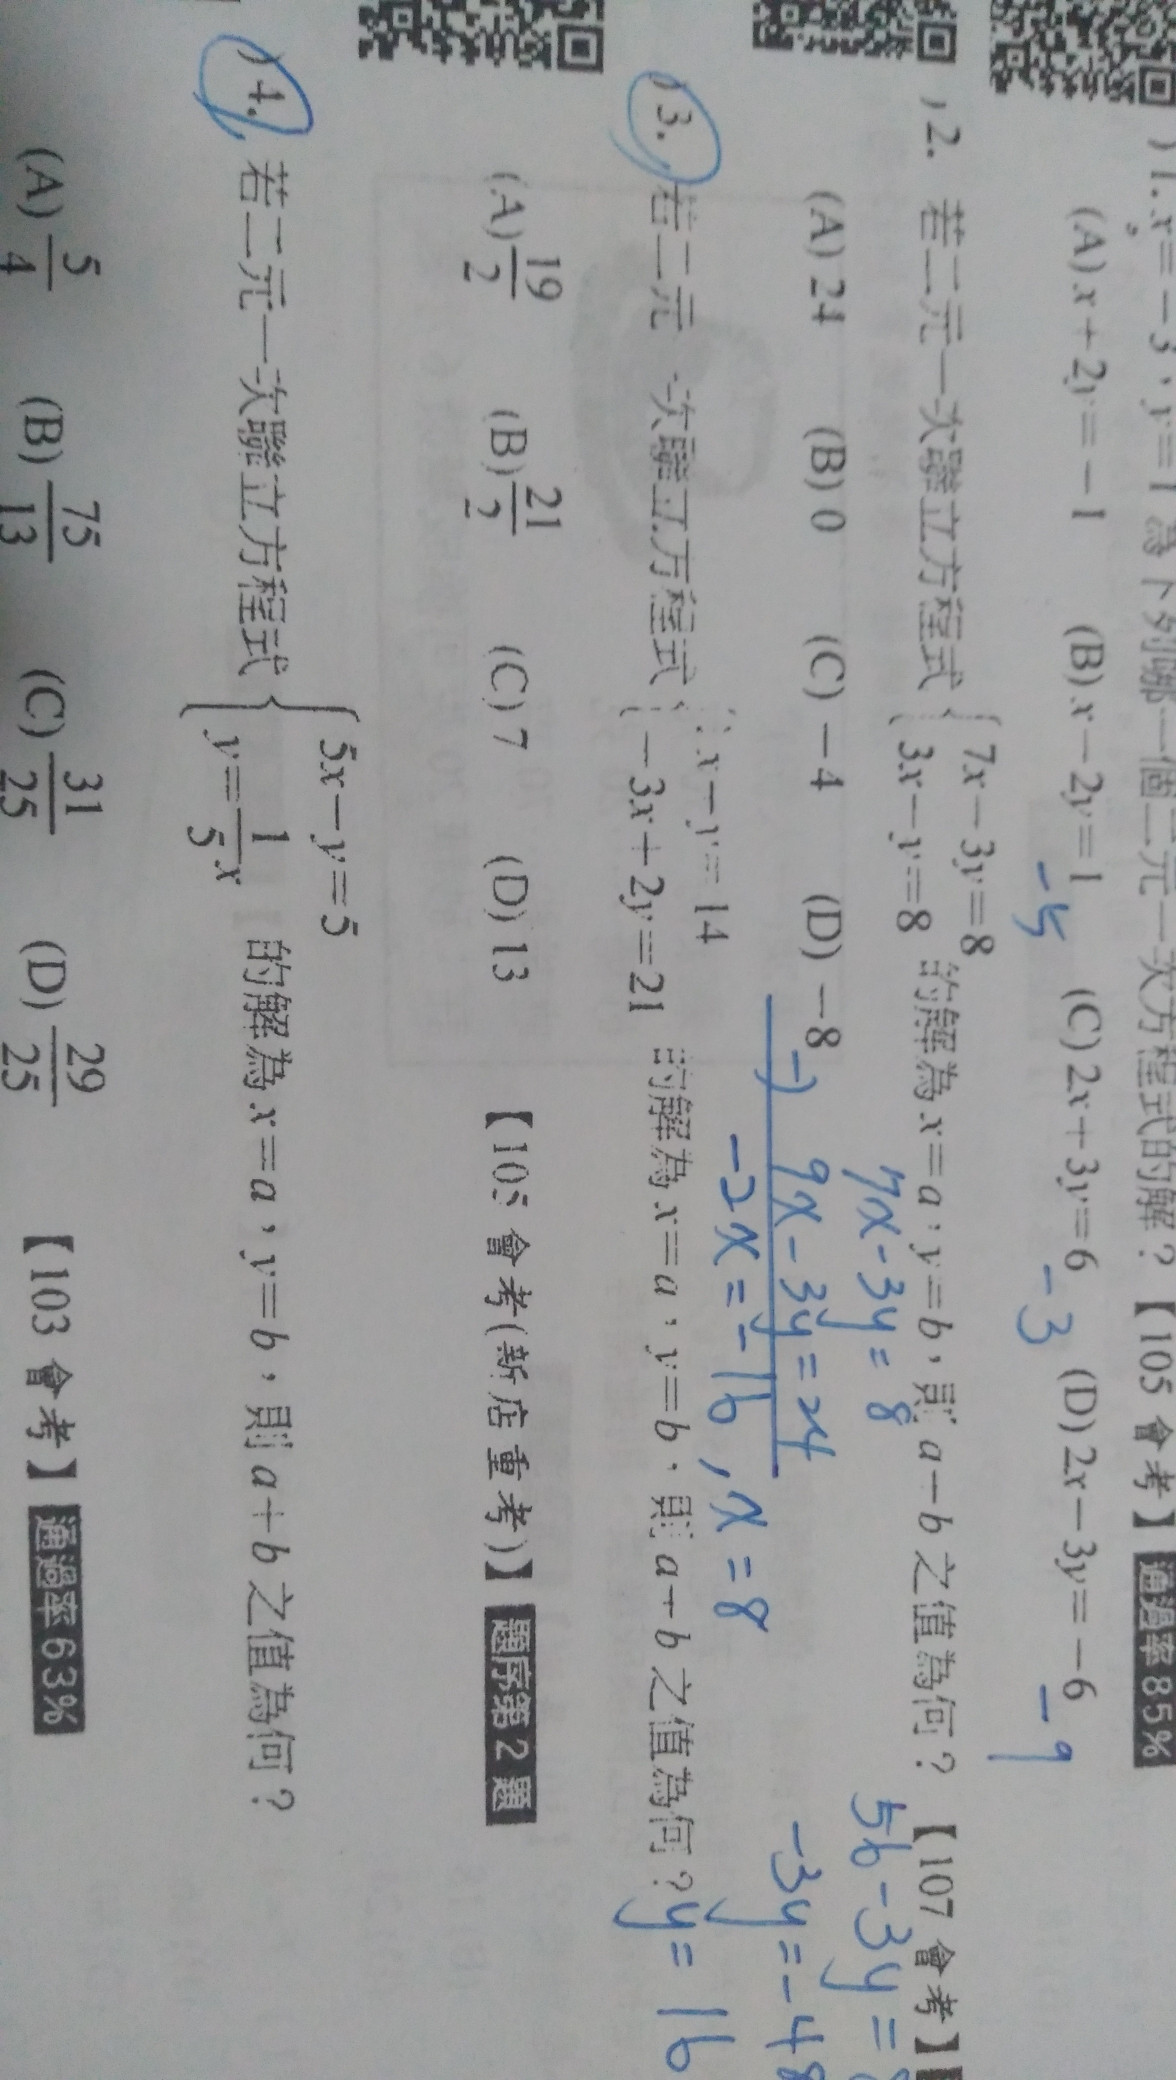 )1. x=-3，y=1 為下列哪一個二元一次方程式的解？【105 會考】通過率85%
(A) x+2y=-1 (B) x-2y=1 (C) 2x+3y=6 (D) 2x-3y=-6
-5 -3 -9
)2. 若二元一次聯立方程式 { 7x-3y=8
3x-y=8 的解為 x=a，y=b，則 a-b 之值為何？【107 會考】
(A) 24 (B) 0 (C) -4 (D) -8
7x-3y=8
-) 9x-3y=24
-2x=-16, x=8
56-3y=
-3y=-48
y=16
)3. 若二元一次聯立方程式 { x-y=14
-3x+2y=21 的解為 x=a，y=b，則 a+b 之值為何？
(A) 19/2 (B) 21/2 (C) 7 (D) 13 【105 會考(新店重考)】題序第2題
)4. 若二元一次聯立方程式 { 5x-y=5
y=1/5x 的解為 x=a，y=b，則 a+b 之值為何？
(A) 5/4 (B) 75/13 (C) 31/25 (D) 29/25 【103 會考】通過率63%